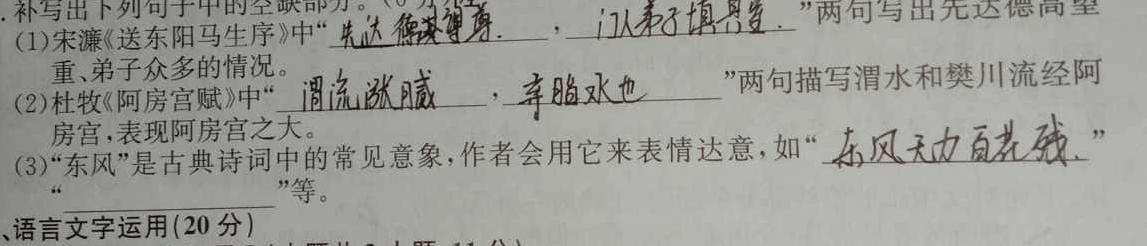 .补写出下列句子中的空缺部分。(6分)
(1)宋濂《送东阳马生序》中“先达德湛望尊.,门人弟子填其室.”两句写出先达德高望
重、弟子众多的情况。
(2)杜牧《阿房宫赋》中“渭流涨腻,弃脂水也”两句描写渭水和樊川流经阿
房宫,表现阿房宫之大。
(3)“东风”是古典诗词中的常见意象,作者会用它来表情达意,如“东风无力百花残.”
“”等。
、语言文字运用(20分)